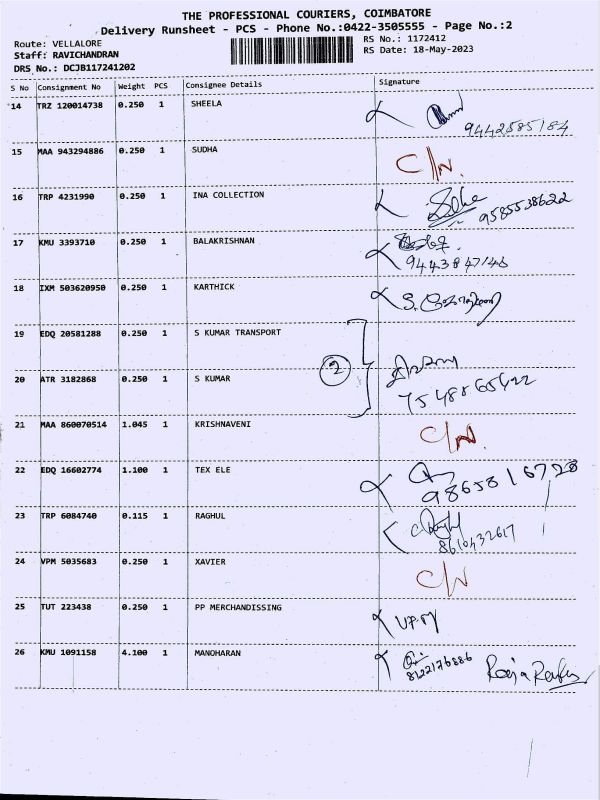 THE PROFESSIONAL COURIERS, COIMBATORE
Delivery Runsheet - PCS - Phone No.:0422-3505555 - Page No.:2
Route: VELLALORE RS No.: 1172412
Staff: RAVICHANDRAN RS Date: 18-May-2023
DRS No.: DCJB117241202
S No Consignment No Weight PCS Consignee Details Signature
14 TRZ 120014738 0.250 1 SHEELA
9442585184
15 MAA 943294886 0.250 1 SUDHA C/N.
16 TRP 4231990 0.250 1 INA COLLECTION 9585538622
17 KMU 3393710 0.250 1 BALAKRISHNAN
9443847146
18 IXM 503620950 0.250 1 KARTHICK
19 EDQ 20581288 0.250 1 S KUMAR TRANSPORT
2
20 ATR 3182868 0.250 1 S KUMAR
7548865422
21 MAA 860070514 1.045 1 KRISHNAVENI C/N.
22 EDQ 16602774 1.100 1 TEX ELE
9865816728
23 TRP 6084740 0.115 1 RAGHUL
8610432617
24 VPM 5035683 0.250 1 XAVIER C/N
25 TUT 223438 0.250 1 PP MERCHANDISSING
26 KMU 1091158 4.100 1 MANOHARAN
8122176886